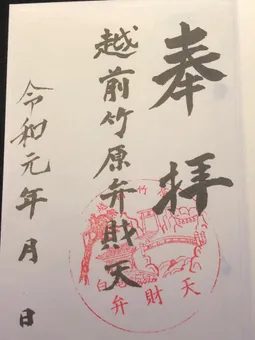 奉拝
越前竹原弁財天
令和元年 月 日
弁財天